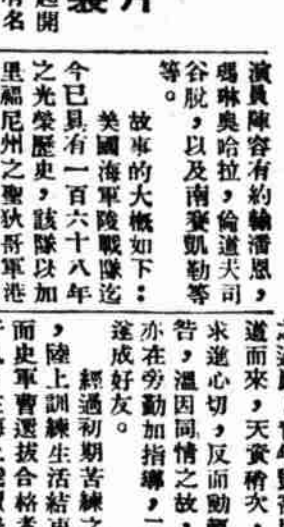 開
名
演員陣容有約翰潘恩，
瑪琳奧哈拉，倫道夫司
谷脫，以及南賽凱勒等
等。
故事的大概如下：
美國海軍陸戰隊迄
今已具有一百六十八年
之光榮歷史，該隊以加
里福尼州之聖狄哥軍港
道而來，天資稍次
求進心切，反而動
告，溫因同情之故，
亦在旁勤加指導，
遂成好友。
經過初期苦練之
，陸上訓練生活結束
而史軍曹選拔合格者